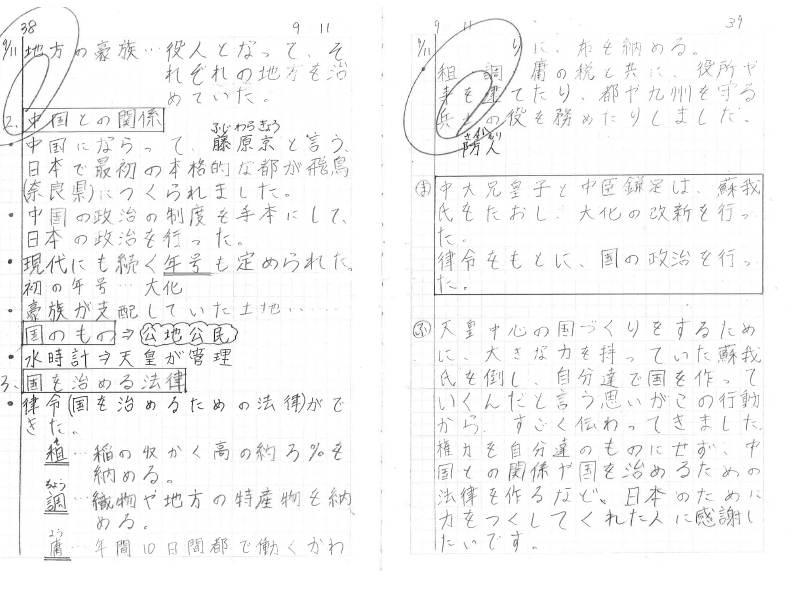 38
9 11
9/11 地方の豪族…役人となって、そ
れぞれの地方を治
めていた。
2. 中国との関係
・中国にならって、藤原京と言う、
ふじわらきょう
日本で最初の本格的な都が飛鳥
(奈良県)につくられました。
・中国の政治の制度を手本にして、
日本の政治を行った。
・現代にも続く年号も定められた。
初の年号…大化
・豪族が支配していた土地……
国のもの⇒公地公民
・水時計⇒天皇が管理
3. 国を治める法律
・律令(国を治めるための法律)がで
きた。
そ
租…稲の収かく高の約3%を
納める。
ちょう
調…織物や地方の特産物を納
める。
よう
庸…年間10日間都で働くかわ
9 11
39
9/11 りに、布を納める。
・租 調 庸の税と共に、役所や
寺を建てたり、都や九州を守る
兵士の役を務めたりしました。
さきもり
防人
ま 中大兄皇子と中臣鎌足は、蘇我
氏をたおし、大化の改新を行っ
た。
律令をもとに、国の政治を行っ
た。
ふ 天皇中心の国づくりをするため
に、大きな力を持っていた蘇我
氏を倒し、自分達で国を作って
いくんだと言う思いがこの行動
から、すごく伝わってきました。
権力を自分達のものにせず、中
国との関係や国を治めるための
法律を作るなど、日本のために
力をつくしてくれた人に感謝し
たいです。